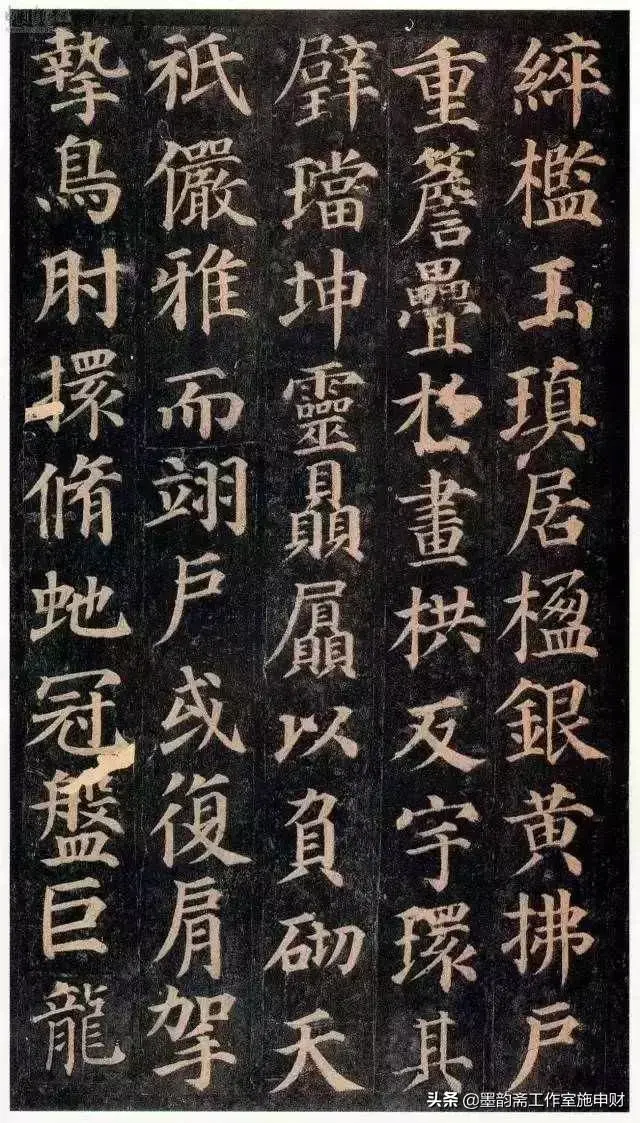 綷檻玉瑱居楹銀黃拂戶
重簷疊於畫栱反宇環其
璧璫坤靈贔屭以負砌天
祇儼雅而翊戶或復肩挐
摯鳥肘擐脩虵冠盤巨龍
头条 @墨韵斋工作室施申财